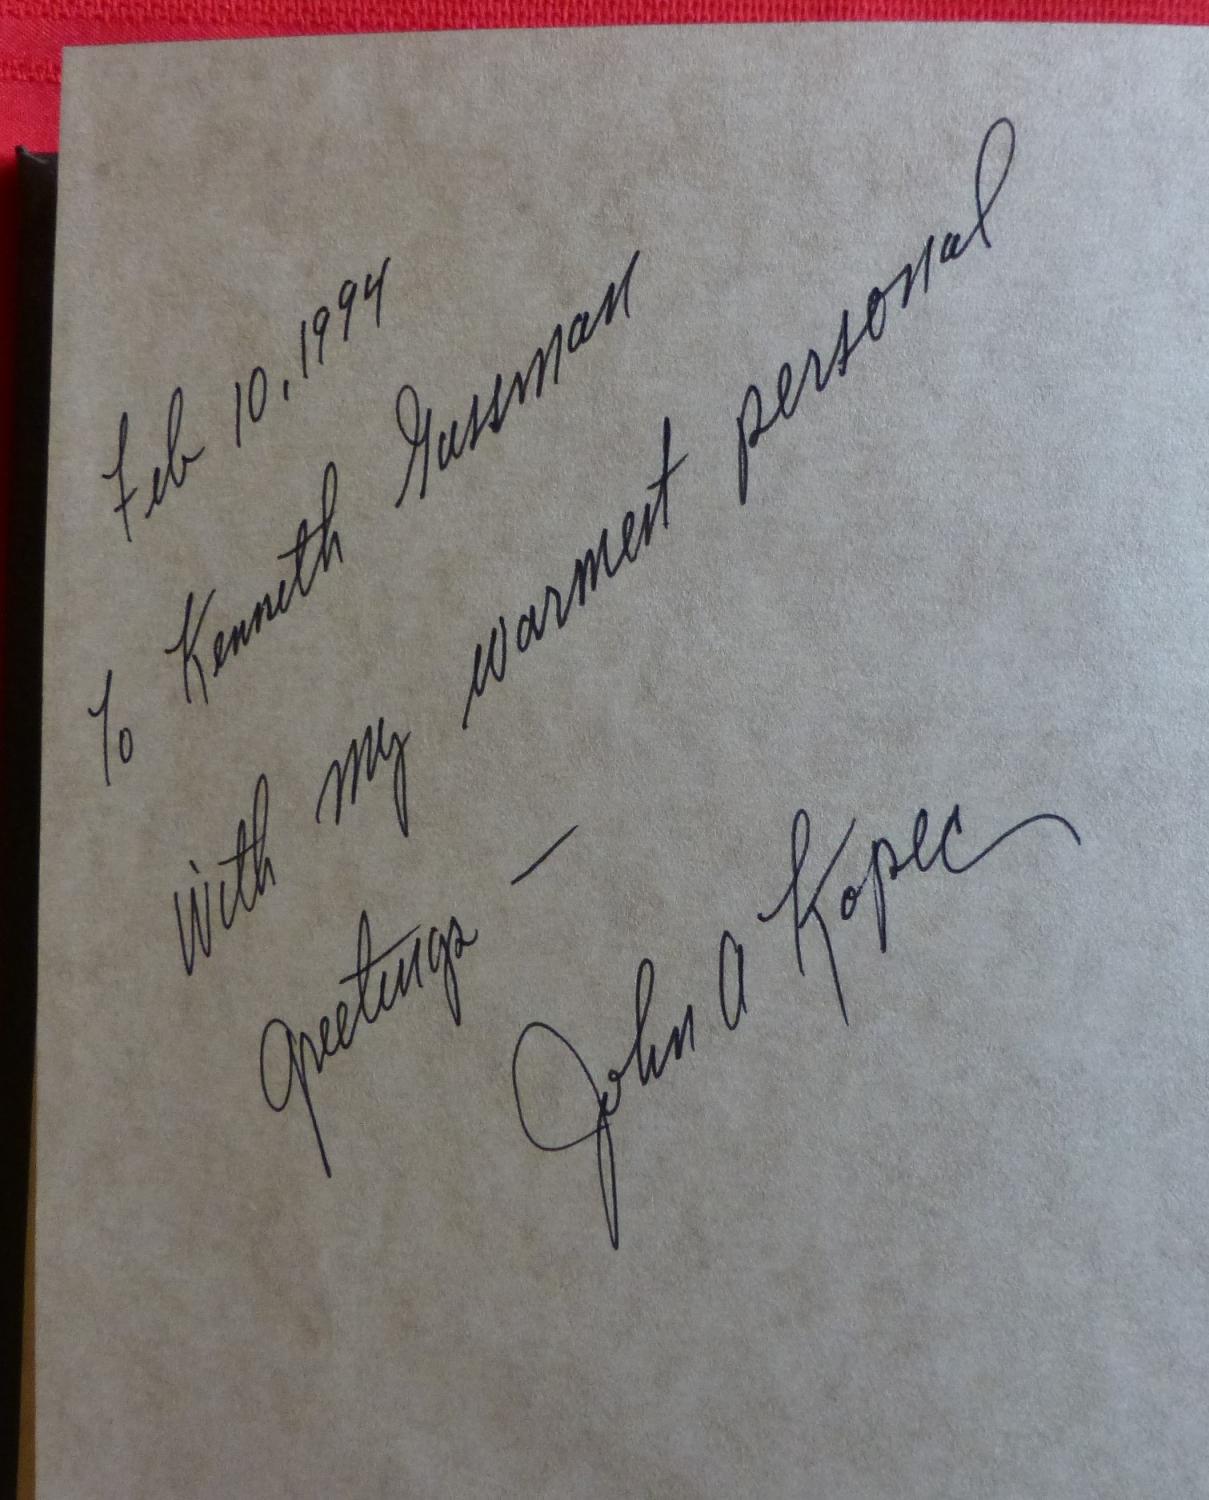 Feb 10, 1994
To Kenneth Gassman
With my warmest personal
greetings —
John A Kopec